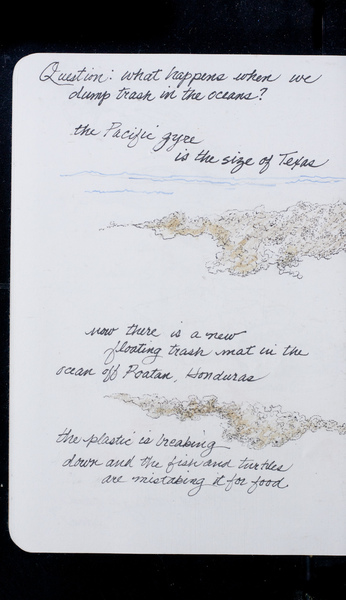 Question: what happens when we
dump trash in the oceans?
the Pacific gyre
is the size of Texas
now there is a new
floating trash mat in the
ocean off Roatan, Honduras
the plastic is breaking
down and the fish and turtles
are mistaking it for food